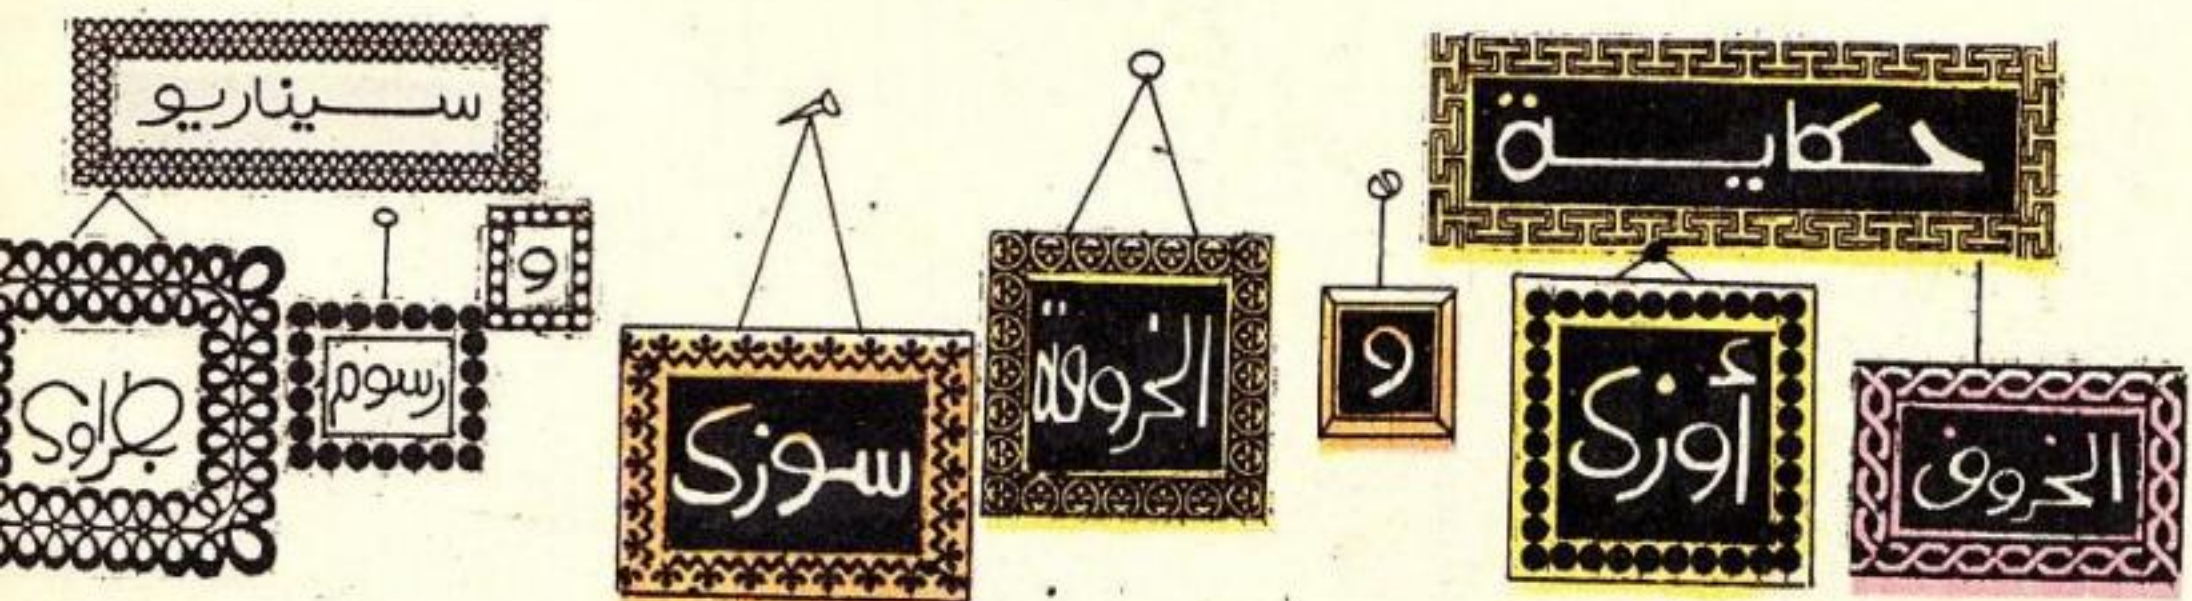 حكاية
الخروف
أوزى
و
الخروفة
سوزى
سيناريو
و
رسوم
طراوى